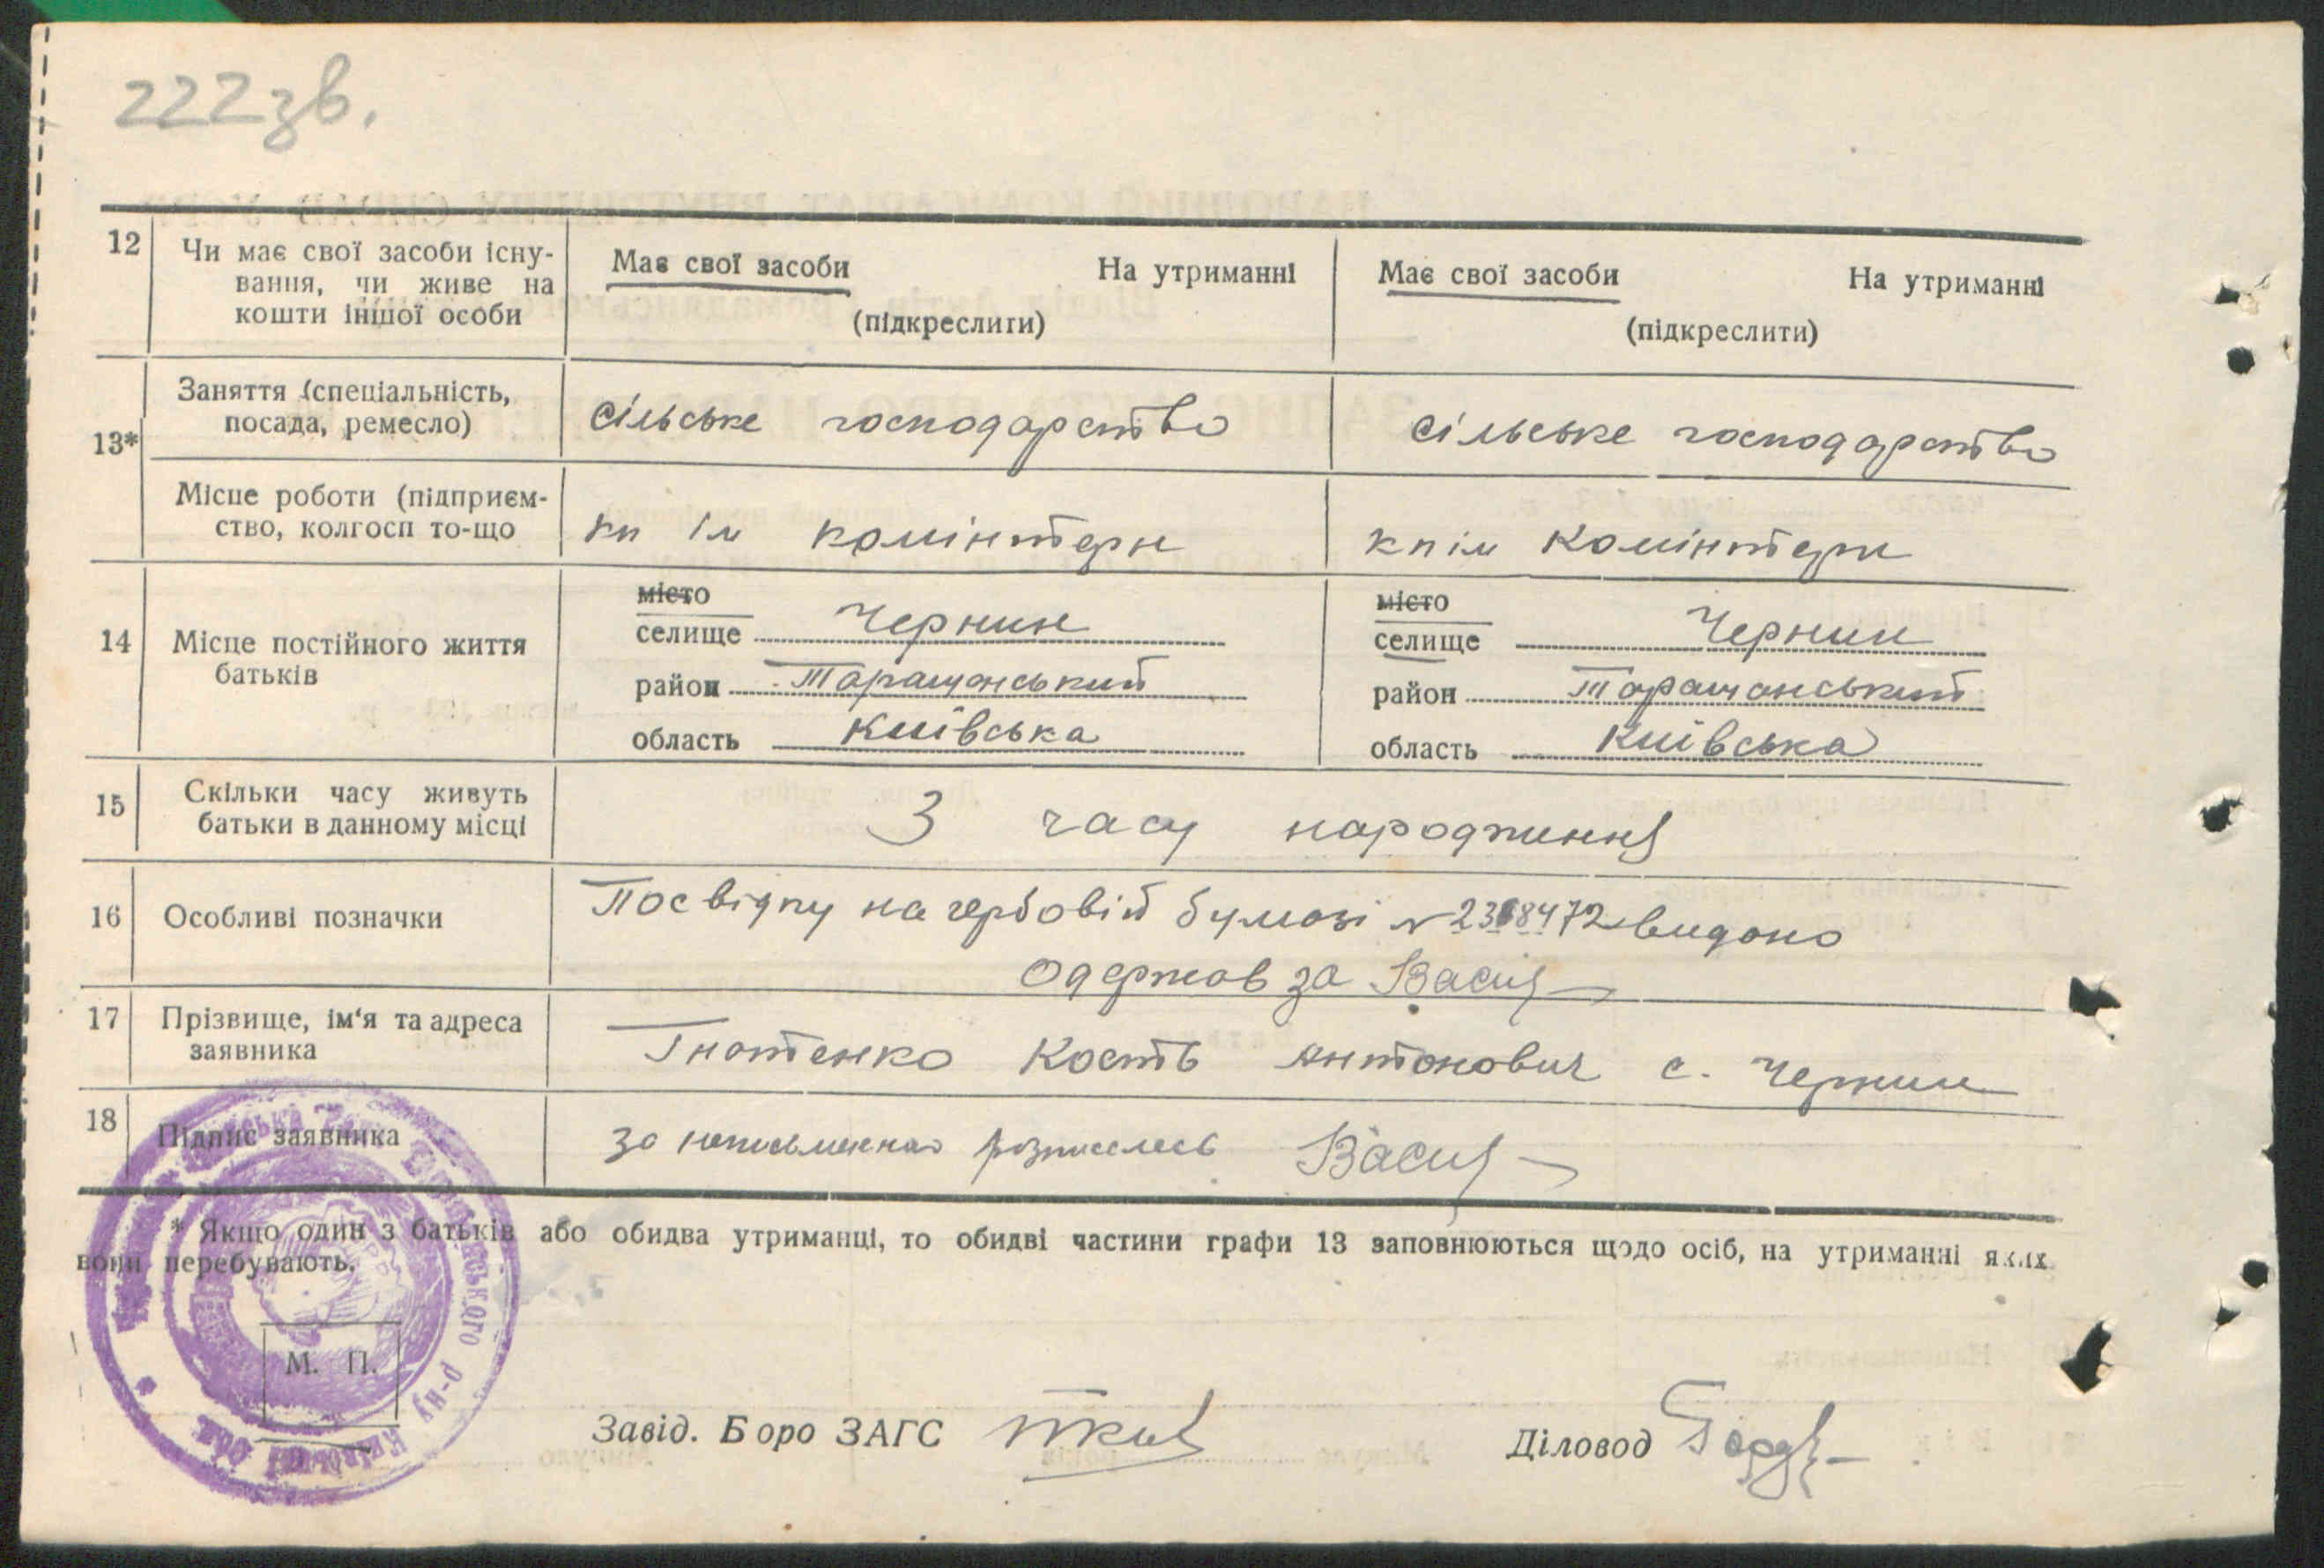 222 зв.
12 Чи має свої засоби існу-
вання, чи живе на
кошти іншої особи
Має свої засоби На утриманні
(підкреслити)
Має свої засоби На утриманні
(підкреслити)
13*
Заняття (спеціальність,
посада, ремесло)
сільське господарство
сільське господарство
Місце роботи (підприєм-
ство, колгосп то-що
кп ім комінтерн
кп ім Комінтерн
14 Місце постійного життя
батьків
місто
селище Чернин
район Таращанський
область Київська
місто
селище Чернин
район Таращанський
область Київська
15 Скільки часу живуть
батьки в данному місці
З часу народження
16 Особливі позначки
Посвідку на гербовій бумазі № 2368472 видано
Одержав за
17 Прізвище, ім'я та адреса
заявника
Гнатенко Кость Антонович с. Чернин
18 Підпис заявника
за неписьменного розписався
* Якщо один з батьків або обидва утриманці, то обидві частини графи 13 заповнюються щодо осіб, на утриманні яких
вони перебувають.
М. П.
Завід. Бюро ЗАГС
Діловод